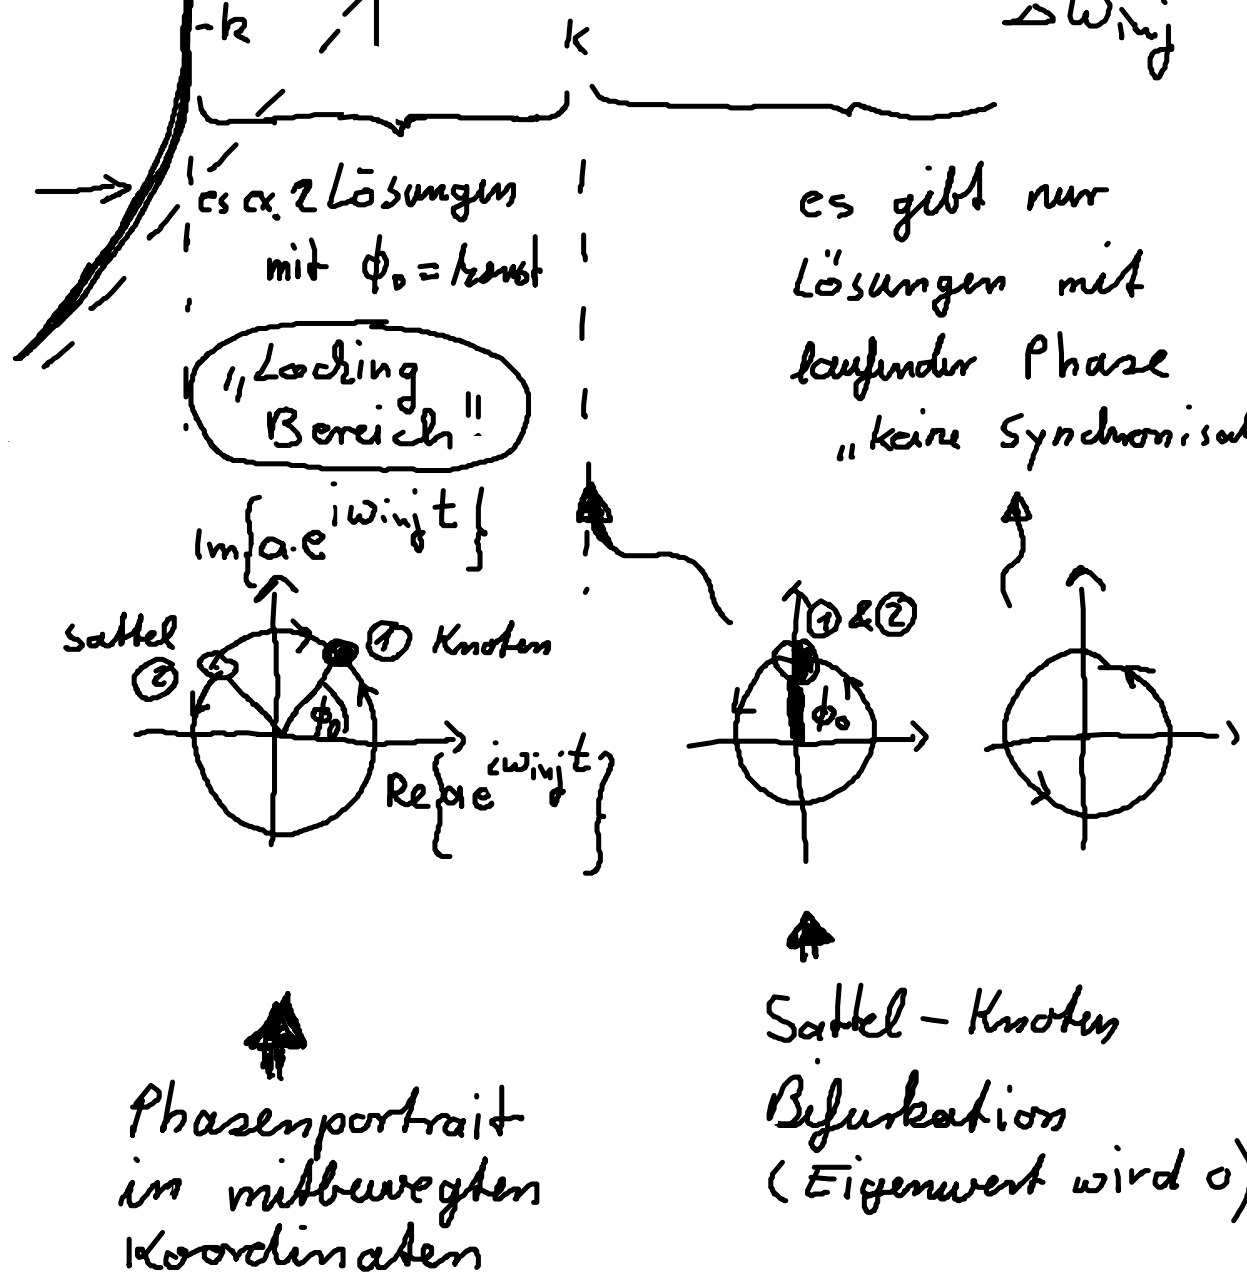 -k
k
Δω_inj
es ex. 2 Lösungen
mit ϕ₀ = konst
"Locking
Bereich"
es gibt nur
Lösungen mit
laufender Phase
"keine Synchronisat
Im{a·e^{iω_inj t}}
Sattel
②
① Knoten
ϕ₀
Re{ae^{iω_inj t}}
① & ②
ϕ₀
Phasenportrait
in mitbewegten
Koordinaten
Sattel - Knoten
Bifurkation
(Eigenwert wird 0)